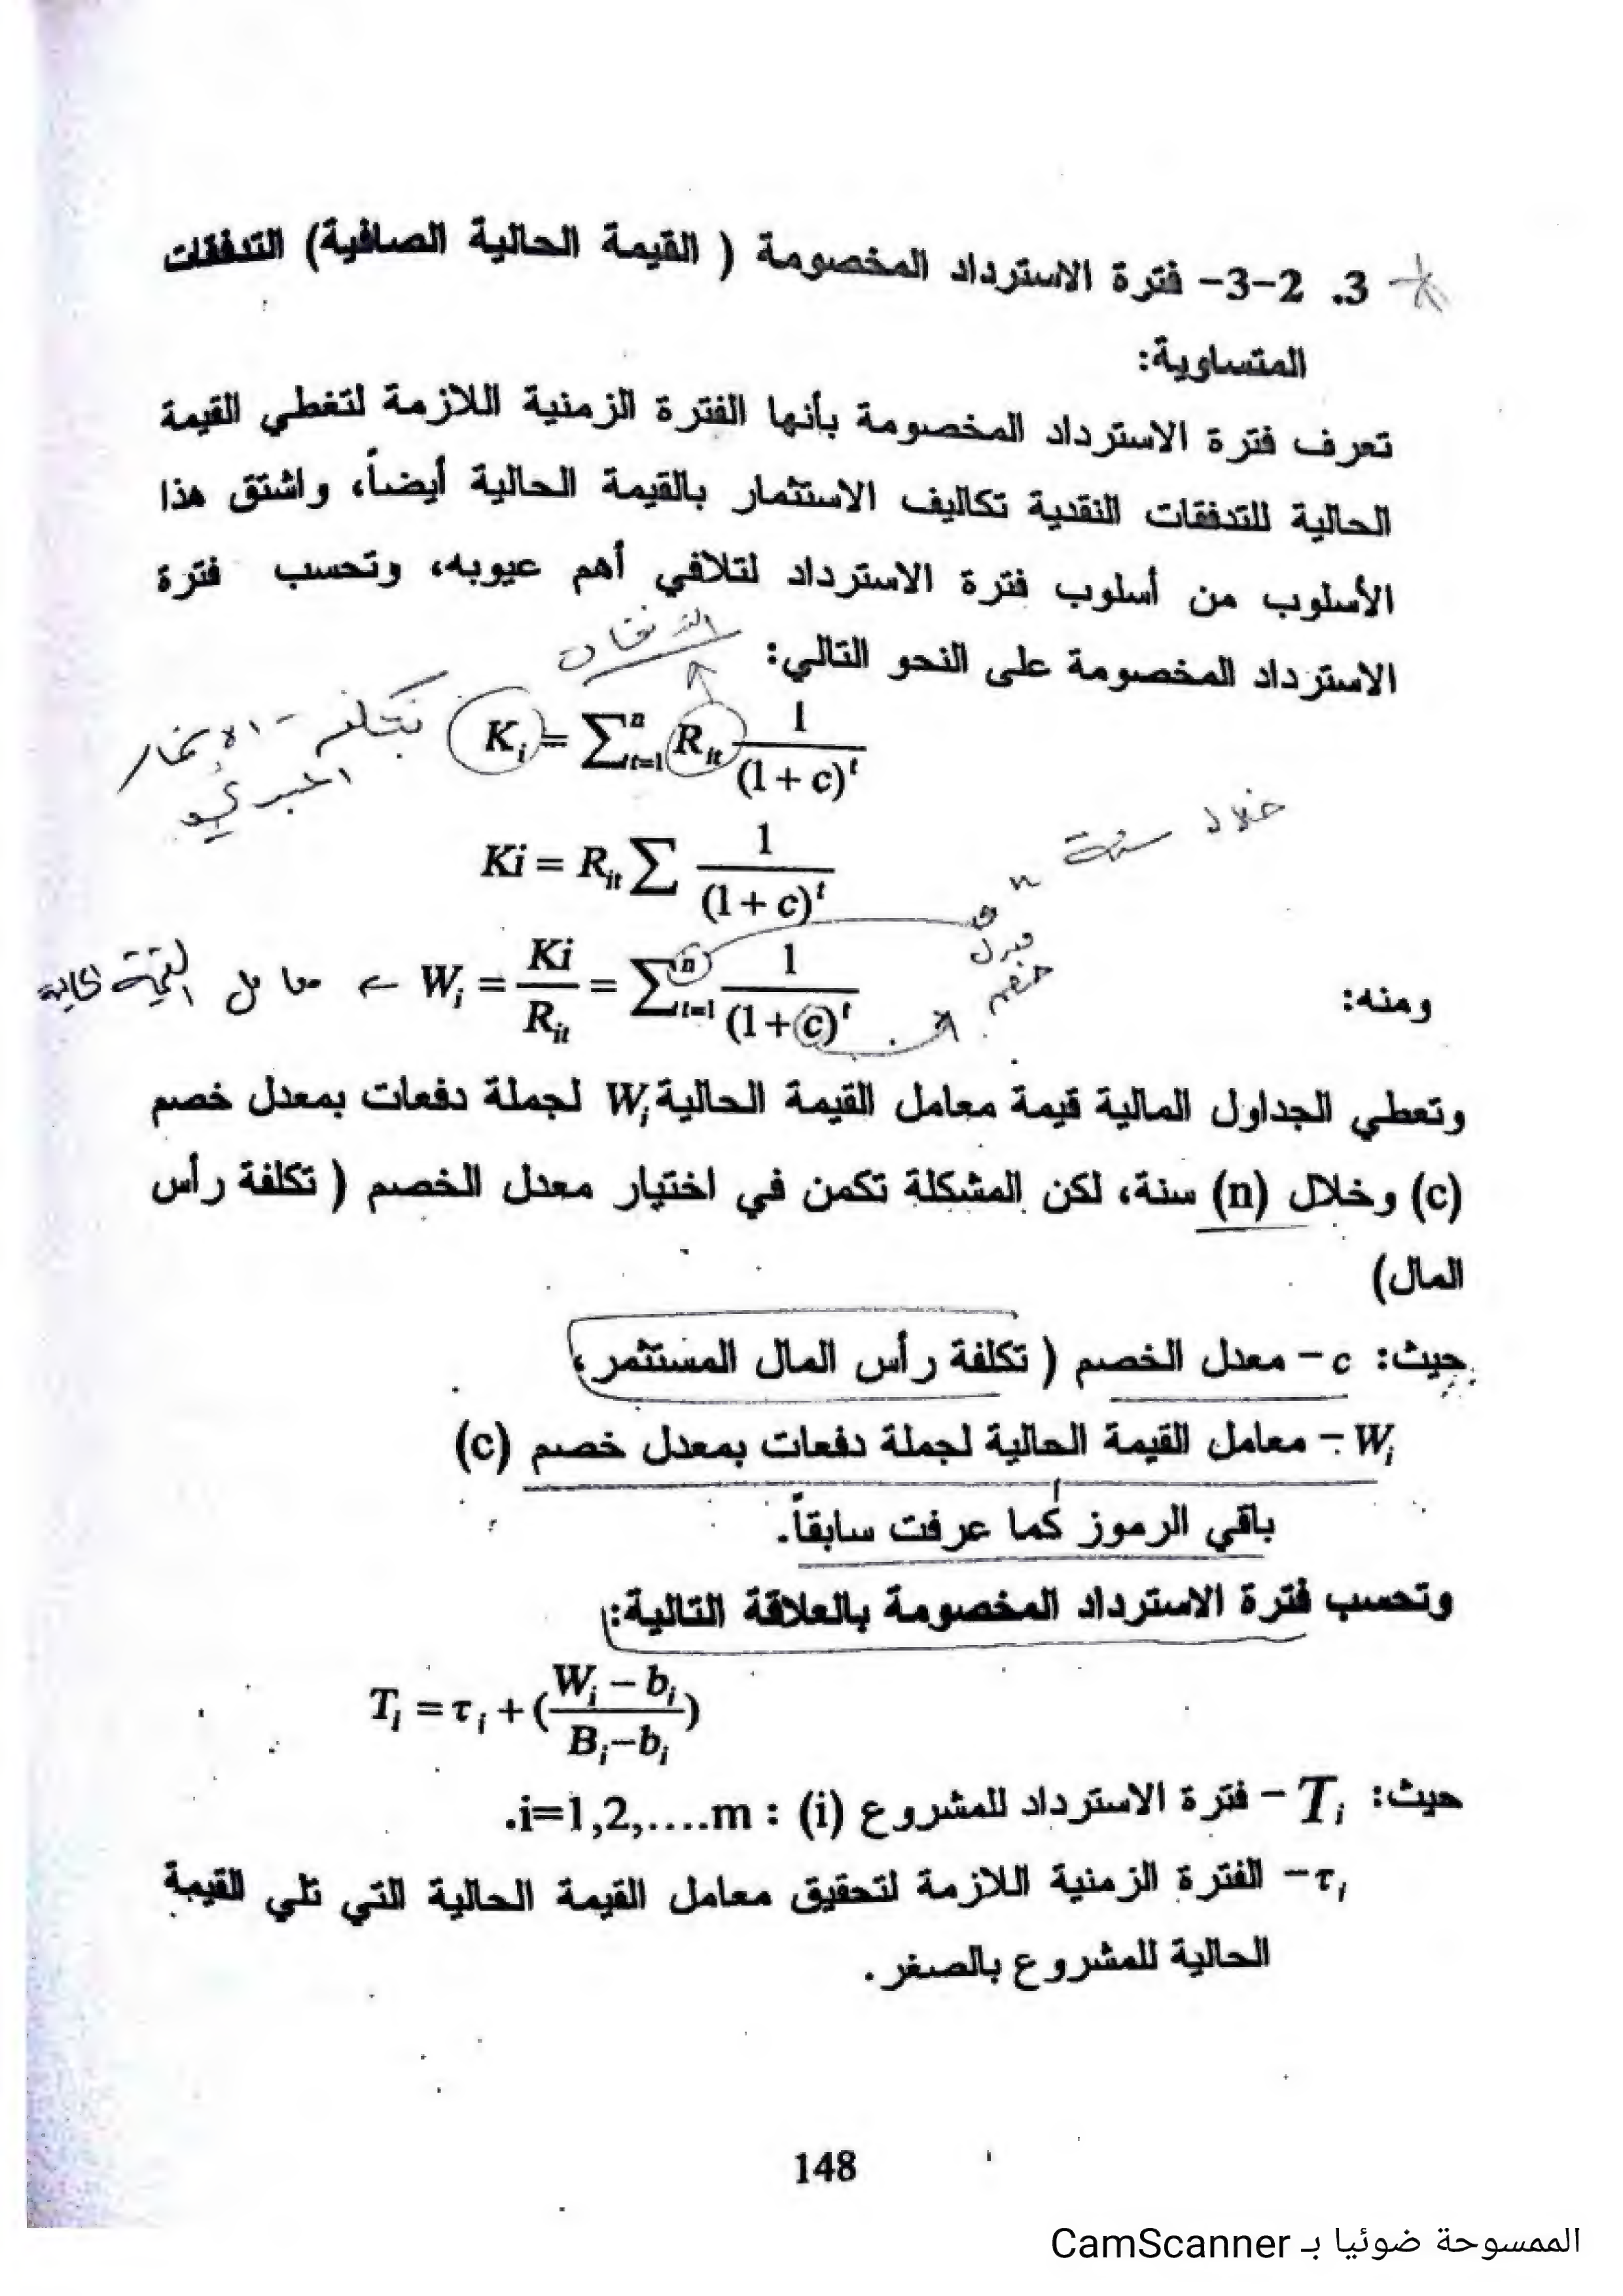 3. 2-3- فترة الاسترداد المخصومة ( القيمة الحالية الصافية) التدفقات
المتساوية:
تعرف فترة الاسترداد المخصومة بأنها الفترة الزمنية اللازمة لتغطي القيمة
الحالية للتدفقات النقدية تكاليف الاستثمار بالقيمة الحالية أيضاً، واشتق هذا
الأسلوب من أسلوب فترة الاسترداد لتلافي أهم عيوبه، وتحسب فترة
الاسترداد المخصومة على النحو التالي:
التدفقات
K_i = ∑_{t=1}^{n} R_{it} 1/(1+c)^t
Ki = R_{it} ∑ 1/(1+c)^t
خلال سنة n
معدل خصم
ومنه: W_i = Ki/R_{it} = ∑_{t=1}^{n} 1/(1+c)^t ← معامل القيمة الحالية
وتعطي الجداول المالية قيمة معامل القيمة الحالية W_i لجملة دفعات بمعدل خصم
(c) وخلال (n) سنة، لكن المشكلة تكمن في اختيار معدل الخصم ( تكلفة رأس
المال)
حيث: c – معدل الخصم ( تكلفة رأس المال المستثمر،
W_i – معامل القيمة الحالية لجملة دفعات بمعدل خصم (c)
باقي الرموز كما عرفت سابقاً.
وتحسب فترة الاسترداد المخصومة بالعلاقة التالية:
T_i = τ_i + ((W_i – b_i)/(B_i – b_i))
حيث: T_i – فترة الاسترداد للمشروع (i) : i=1,2,....m.
τ_i – الفترة الزمنية اللازمة لتحقيق معامل القيمة الحالية التي تلي القيمة
الحالية للمشروع بالصغر.
148
الممسوحة ضوئيا بـ CamScanner